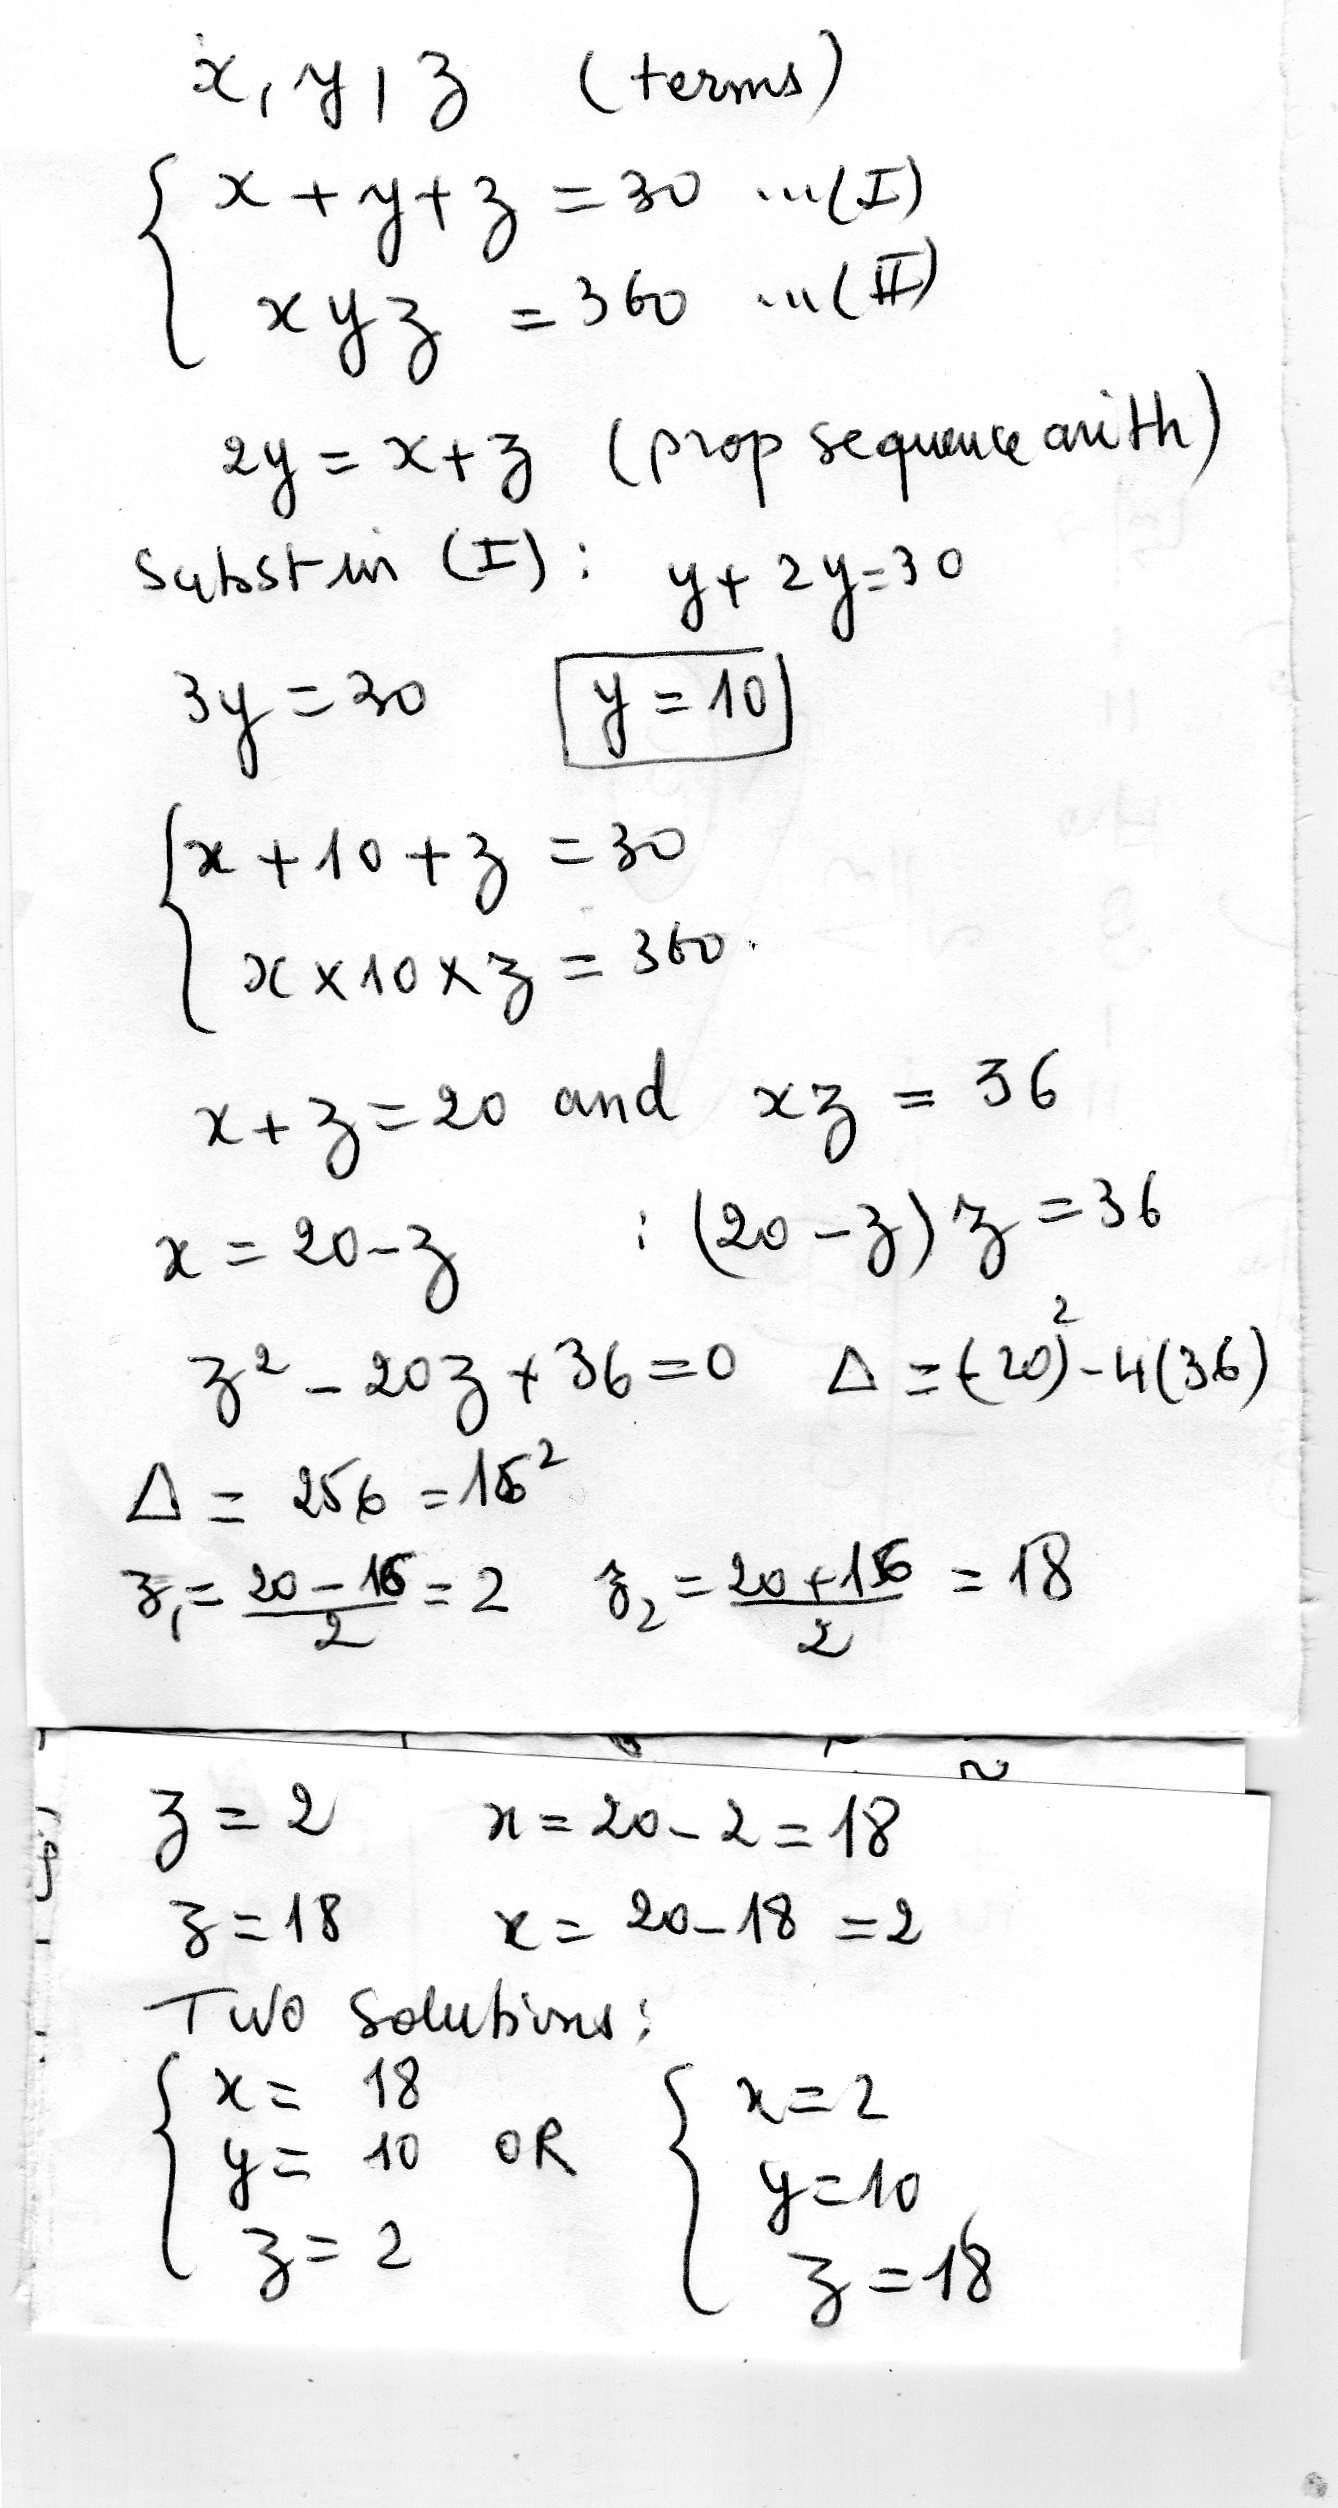 x, y, z (terms)
x + y + z = 30 ...(I)
x y z = 360 ...(II)
2y = x + z (prop sequence arith)
subst in (I): y + 2y = 30
3y = 30 y = 10
x + 10 + z = 30
x × 10 × z = 360.
x + z = 20 and xz = 36
x = 20 - z : (20 - z) z = 36
z² - 20z + 36 = 0 Δ = (-20)² - 4(36)
Δ = 256 = 16²
z₁ = (20 - 16)/2 = 2 z₂ = (20 + 16)/2 = 18
z = 2 x = 20 - 2 = 18
z = 18 x = 20 - 18 = 2
Two solutions:
x = 18 x = 2
y = 10 OR y = 10
z = 2 z = 18